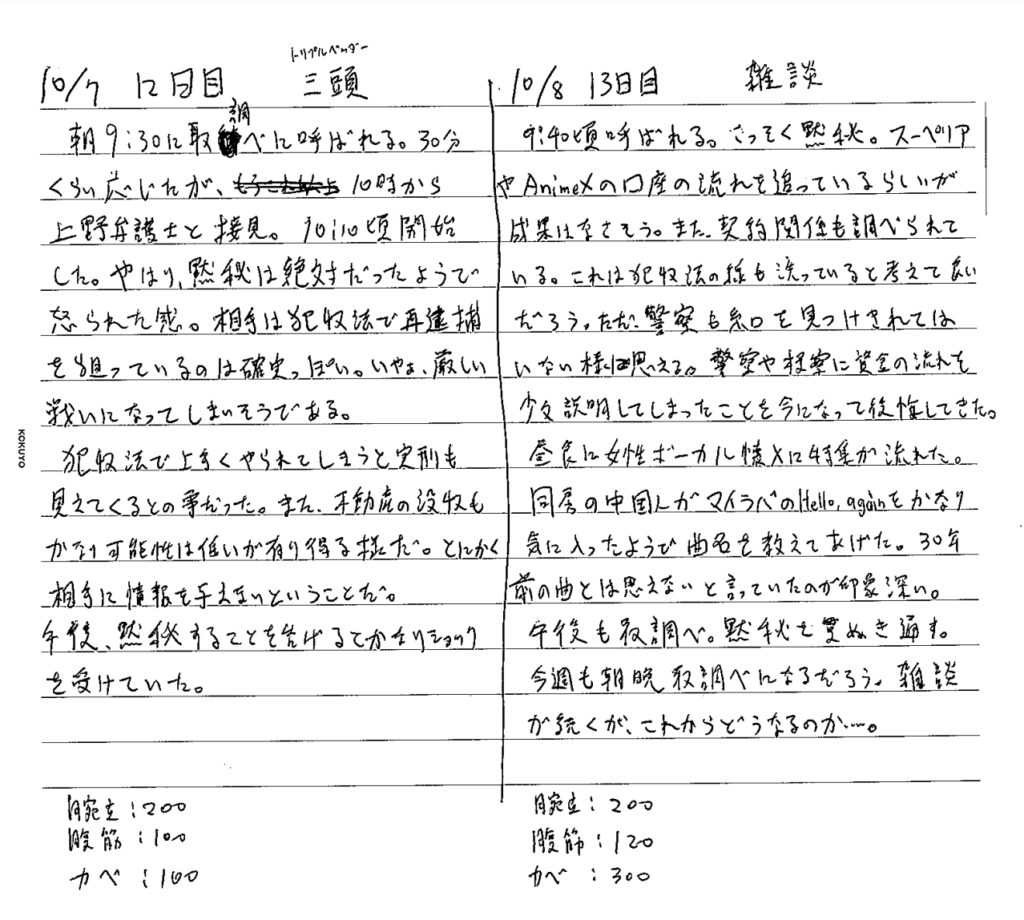 トリプルヘッダー
10/7 12日目 三頭
朝9:30に取調べに呼ばれる。30分
くらい応じたが、10時から
上野弁護士と接見。10:10頃開始
した。やはり、黙秘は絶対だったようで
怒られた感。相手は犯収法で再逮捕
を狙っているのは確実っぽい。いやぁ、厳しい
戦いになってしまいそうである。
犯収法で上手くやられてしまうと実刑も
見えてくるとの事だった。また、不動産の没収も
かなり可能性は低いが有り得る様だ。とにかく
相手に情報を与えないということだ。
午後、黙秘することを告げるとかなりショック
を受けていた。
腕立:200
腹筋:100
カベ:100
10/8 13日目 雑談
9:40頃呼ばれる。さっそく黙秘。スーペリア
やAnimeXの口座の流れを追っているらしいが
成果はなさそう。また、契約関係も調べられて
いる。これは犯収法の線も洗っていると考えて良い
だろう。ただ、警察も糸口を見つけきれては
いない様に思える。警察や検察に資金の流れを
少々説明してしまったことを今になって後悔してきた。
昼食に女性ボーカル懐メロ特集が流れた。
同房の中国人がマイラバのHello, againをかなり
気に入ったようで曲名を教えてあげた。30年
前の曲とは思えないと言っていたのが印象深い。
午後も取調べ。黙秘を貫ぬき通す。
今週も朝晩取調べになるだろう。雑談
が続くが、これからどうなるのか…。
腕立:200
腹筋:120
カベ:300
KOKUYO